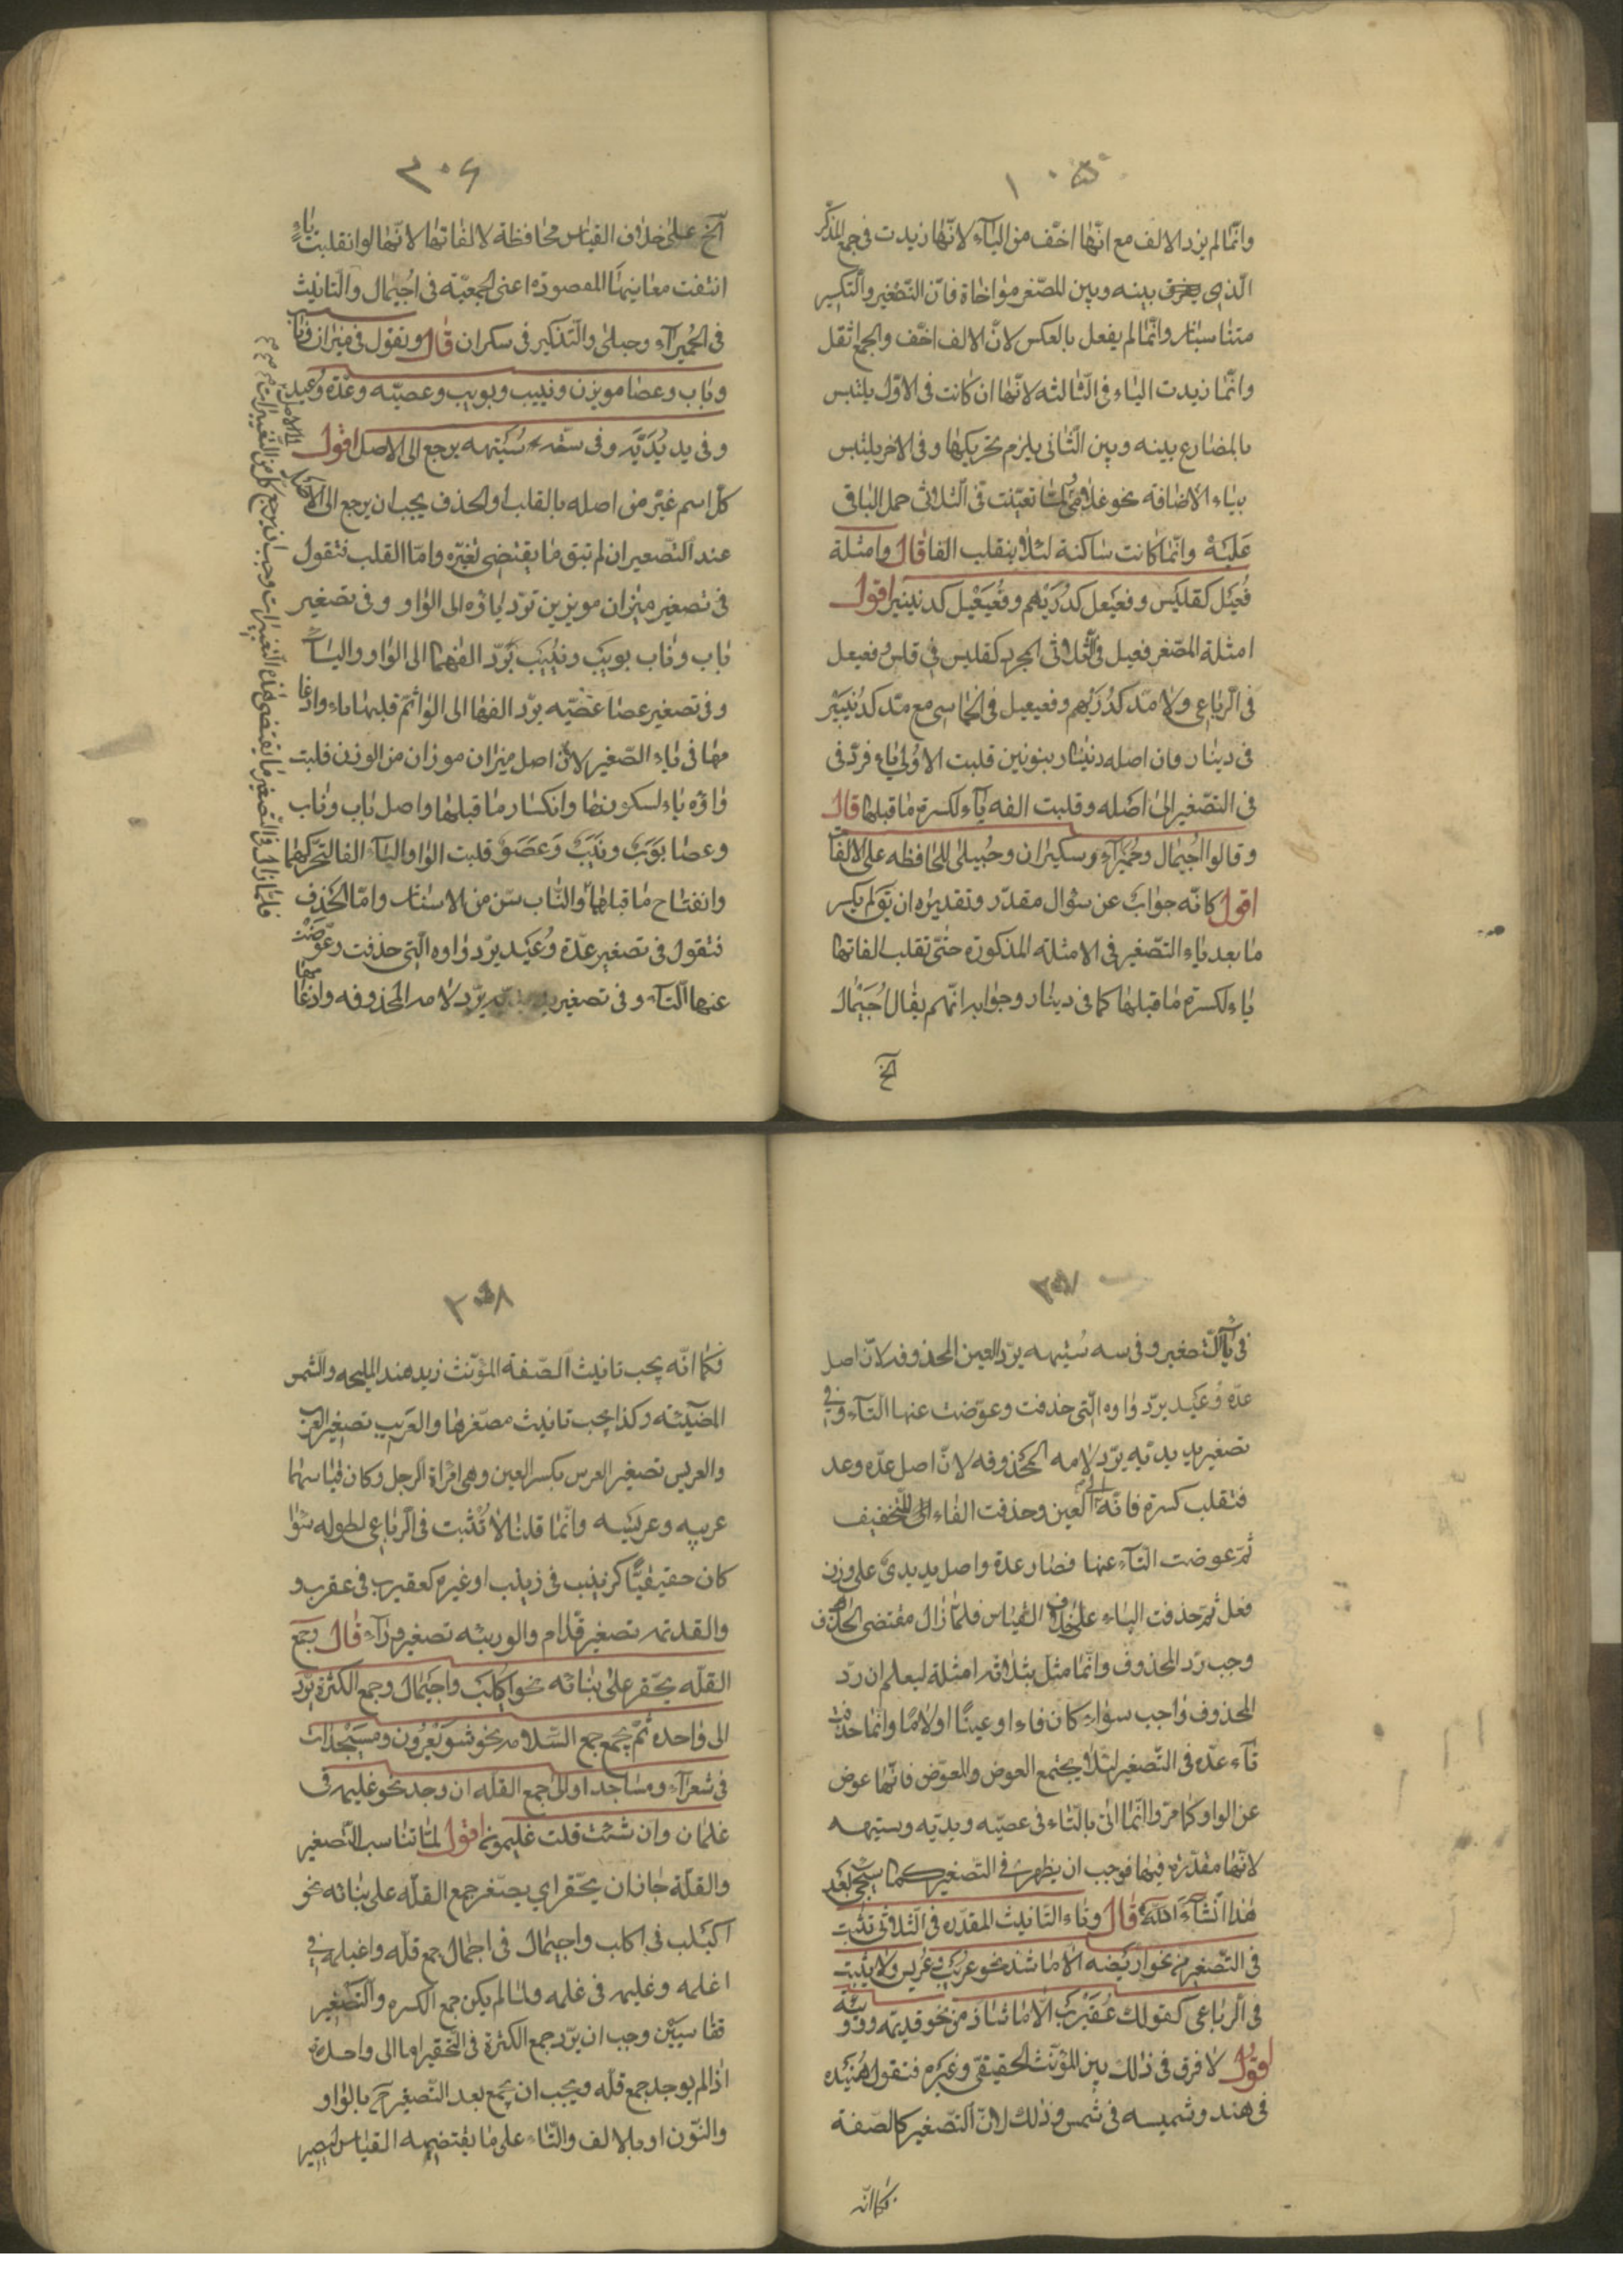 وانّما لم يزد الالف مع انّها اخّف من اليآء لانّها زيدت فى جمع المذكّر
الّذى بينه وبين المصّغر مواخاة فانّ التّصغير والّتكسير
متناسبان وانّما لم يفعل بالعكس لانّ الالف اخّف والجمع اثقل
وانّما زيدت الياء فى الثّالثه لانّها ان كانت فى الاوّل يلتبس
بالمضارع بينه وبين الثّانى يلزم تحريكها وفى الاخر يلتبس
بياء الاضافة نحو غلامى تعيّنت فى الثلاثى حمل الباقى
عَليَهْ وانّما كانت ساكنة لئلّا ينقلب الفا قال وامثلة
فُعَيْل كفليَس وفعيعل كدُرَيْهم وفُعَيْعيْل كدنينير اقول
امثلة المصّغر فعيل فى الثّلاثى المجرد كفليس فى فلس وفعيعل
فى الرّباعى ولا مدّ كدُرَيْهم وفعيعيل فى الخماسى مع مدّ كدُنَينيْر
فى دينار فان اصله دنّنار بنونين قلبت الاوُلى ياء فردّ فى
فى التصّغير الى اصله وقلبت الفه يآء لكسرة ماقبلها قال
وقالوا اجُيمال وحُمَيْرآء وسكيران وحُبيلى للمحافظه على الالفات
اقول كانّه جوابٌ عن سؤال مقدّر وتقديره ان يَق لم يكسر
ما بعد ياء التصّغير فى الامثلة المذكورة حتّى تقلب الفاتها
ياء لكسرة ماقبلها كما فى دينار وجوابه انّهم يقال اُجَيْمال
الخ
٣٠۶
الخ على خلاف القياس محافظة لالفاتها لانّها لو انقلبت ياءً
انتفت معانيها المقصودة اعنى الجمعيّة فى اجُيمال والتّانيث
فى الحُميرآء وحبيلى والتّذكير فى سكران قال وتقول فى ميزان وناب
وباب وعصا مويزن ونييب وبويب وعصيّه وعدّة وُعيد
وفى يد يُدَيَّه وفى سته سُتَيهه يرجع الى الاصل اقول
كلّ اسم غيّر من اصله بالقلب او الحذف يجب ان يرجع الى الاصل
عند التّصغير ان لم تبق ما يقتضى تغيّره وامّا القلب فتقول
فى تصغير ميزان مويزين تردّ ياؤه الى الواو وفى تصغير
باب وناب بويَبْ ونُيَيَبْ بَرّد الفهما الى الواو والياء
وفى تصغير عصا عصّيه بردّ الفها الى الواو ثمّ قلبها ياء وادغا
مها فى ياء الصّغير لانّ اصل ميزان موزان من الوزن قلبت
واوه ياء لسكونها وانكسار ماقبلها واصل باب وناب
وعصا بَوَبٌ ونَيَبٌ وَعَصَوٌ قلبت الواو واليآء الفا لتحرّكهما
وانفتاح ماقبلهما والنّاب سّن من الاسنان وامّا الحذف
فتقول فى تصغير عدّة وُعَيْد بردّ واوه الّتى حذفت وعوّضت
عنها التّآء وفى تصغير يد بردّ لامه المحذوفه وادغامها
٣٠٧
فى ياء التّصغير وفى سه سُتيهه بردّ العين المحذوفه لانّ اصل
عدّه وُعَيْد بردّ واوه الّتى حذفت وعوّضت عنها التّآء وفى
تصغير يد يديّه بردّ لامه المحذوفه لانّ اصل عدّه وعد
فنقلب كسرة فائه الى العين وحذفت الفاء للتّخفيف
ثمّ عوضت التّآء عنها فصار عدة واصل يد يدىٌ على وزن
فعل ثمّ حذفت الياء على خلاف القياس فلمّا زال مقتضى الحذف
وجب ردّ المحذوف وانّما مثل بثلاثه امثلة ليعلم ان ردّ
المحذوف واجب سواء كان فاء او عينًا او لامًا وانّما حذفت
تآء عدّه فى التّصغير لئلّا يجتمع العوض والمعوّض فانّها عوض
عن الواو كما مرّ وانّما اتى بالتّاء فى عصيّه ويديّه وستيهه
لانّها مقدّرة فيها فوجب ان يظهر فى التصّغير كما سيجئ بعد
هذا انشآء الله قال وتاء التّانيث المقدّره فى الثّلاثى تثبت
فى التّصغير نحو اريضه الّا ما شذ نحو عُريَب وعُريس ولا يثبت
فى الرّباعى كقولك عُقَيْرَبٌ الّا ما شاذ من نحو قديديمه ووريئة
اقول لا فرق فى ذلك بين المؤنّث الحقيقىّ وغيره فتقول هُنَيْده
فى هند وشميسه فى شمس وذلك لانّ التّصغير كالصّفة
فكما انّه
٣٠٨
فكما انّه يجب تانيث الصّفة المؤنّث زيد هند المليحه والشّمس
المضيئه وكذا يجب تانيث مصّغرها والعَريب تصغير العرب
والعريس تصغير العرس بكسر العين وهى امرأة الرجل وكان قياسهما
عريبه وعريسه وانّما قلنا لا تُثبت فى الرّباعى لطوله سوا
كان حقيقيًّا كزيْنِب فى زينب او غيره كعقيرب فى عقرب و
والقديديمه تصغير قدّام والوريئه تصغير ورآء قال وجمع
القلّه يحّقر على بنائه نحو اكيلب واجيَمال وجمع الكثرة يردّ
الى واحده ثمّ يجمع جمع السّلامه نحو شوَيْعِرُون ومُسَيْجَدات
فى شعرآء ومساجد او الى جمع القلّه ان وجد نحو غليمه فى
غلمان وان شئت قلت غليمون اقول لمّا تناسب التّصغير
والقلّة جاز ان يحّقر اى يصّغر جمع القلّه على بنائه نحو
اكيَلب فى اكلب واجيمال فى اجمال جمع قلّه واغيلمه فى
اغلمه وغليمه فى غلمه ولمّا لم يكن جمع الكثره والّتصغير
متناسبَيْن وجب ان يردّ جمع الكثرة فى التّحقير امّا الى واحده
اذا لم يوجد جمع قلّه ويجب ان يجمع بعد التّصغير بالواو
والنّون او بالالف والتّاء على ما يقتضيه القياس